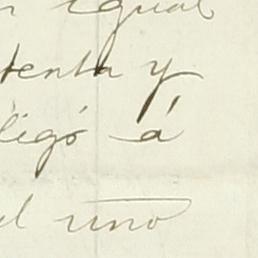 n igual
tenta y
ligó á
el uno